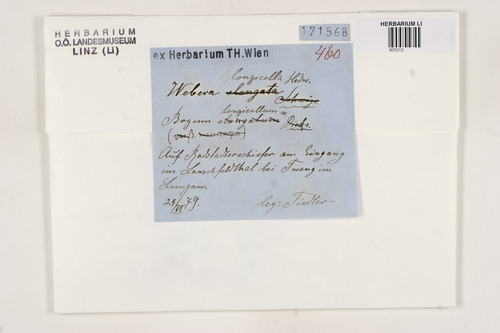 HERBARIUM
O.Ö. LANDESMUSEUM
LINZ (LI)
171568
HERBARIUM LI
ex Herbarium TH.Wien
460
longicolla Hedw.
Webera elongata Schwägr
longicollum
Bryum elongatum Dicks.
Auf Radstadterschiefer am Eingang
ins Lanschfeldthal bei Tweng im
Lungau.
79. leg: Fiedler